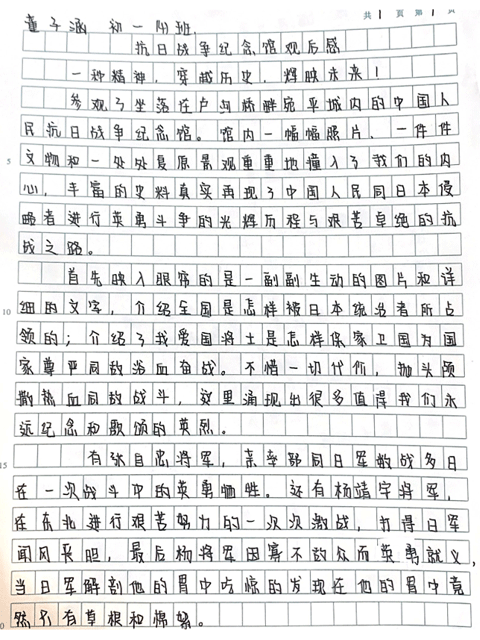 共 页 第 页
童子涵 初一(4)班
抗日战争纪念馆观后感
一种精神，穿越历史，辉映未来！
参观了坐落在卢沟桥畔宛平城内的中国人
民抗日战争纪念馆。馆内一幅幅照片，一件件
5
文物和一处处复原景观重重地撞入了我们的内
心，丰富的史料真实再现了中国人民同日本侵
略者进行英勇斗争的光辉历程与艰苦卓绝的抗
战之路。
首先映入眼帘的是一副副生动的图片和详
10
细的文字，介绍全国是怎样被日本统治者所占
领的；介绍了我爱国将士是怎样保家卫国为国
家尊严同敌浴血奋战。不惜一切代价，抛头颅
撒热血同敌战斗，这里涌现出很多值得我们永
远纪念和歌颂的英烈。
15
有张自忠将军，亲率部同日军敌战多日
在一次战斗中的英勇牺牲。还有杨靖宇将军，
在东北进行艰苦努力的一次次激战，打得日军
闻风丧胆，最后杨将军因寡不敌众而英勇就义，
当日军解剖他的胃中吃惊的发现在他的胃中竟
然只有草根和棉絮。